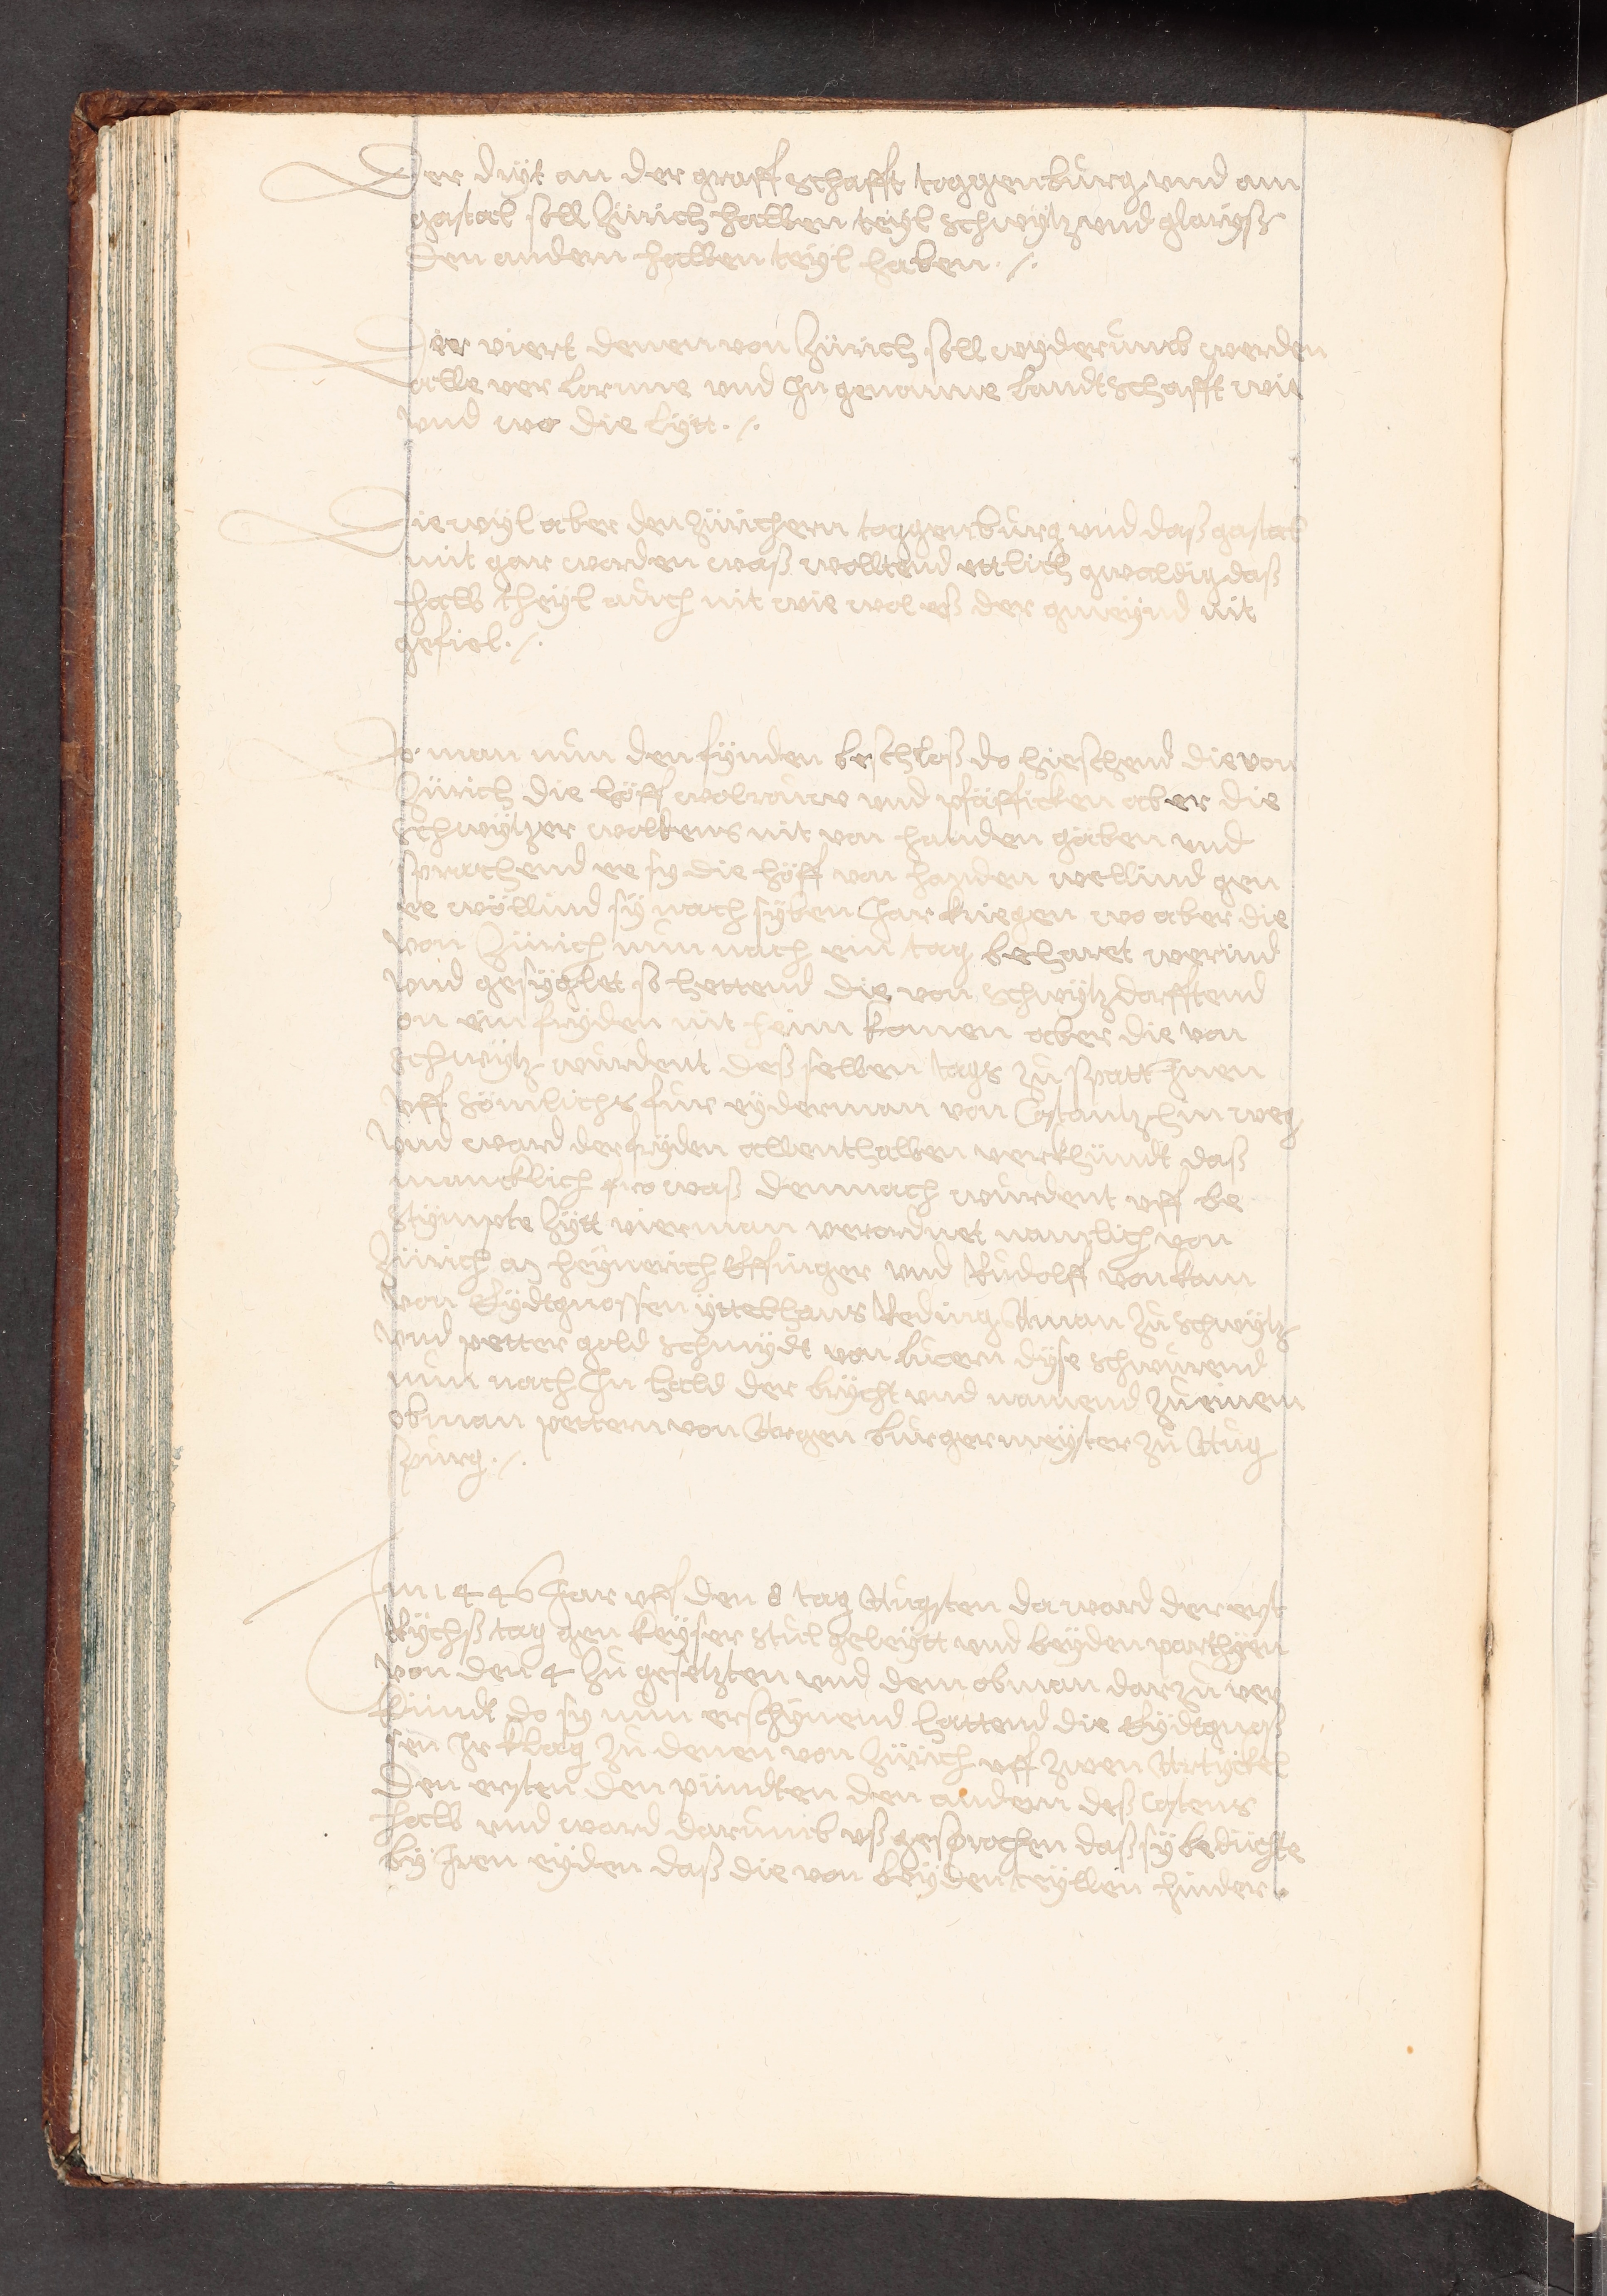 Der dryt an der graffschafft toggenburg und am
gastal soll Zürich halben teyl schwytz und glaryß
den andern halben teyl haben ·/·
Der viert denen von Zürich soll wyderumb werden
alle verlorne und in genomne landtschafft wie
und wo die lytt ·/·
Die wyl aber den Zürichern toggenburg und daß gastal
nit gar worden waß wolltend ettlich gwaldig daß
halb theyl auch nit wie wol eß der gmeynd nit
gefiel ·/·
Do man nun den fryden beschloß do hieschend die von
Zürich die höff wolrauw und pfäfficken aber die
schwytzer woltens nit von handen gäben und
sprachend ee sy die höff von handen wellind gen
ee wöllind sy nach syben Jar kriegen wo aber die
von Zürich nun nach ein tag beharet werind
und gesyglet so hettend die von schwytz dorfftend
on ein fryden nit heim komen aber die von
schwytz wurdent deß selben tags zu spatt Jnen
uff sömlichs fur eyderman von Costantz hin weg
und ward der fryden allenthalben verkhündt daß
mancklich fro waß demnach wurdent uff be
stympte Zytt vierman verordnet namlich von
Zürich heynerich Effinger und Rudolff von kam
von Eydtgnossen yttel hans Reding Aman zu schwytz
und petter goldschmydt von lucern dyse schwurend
nun nach Jn hald der brycht und namend zu einem
obman pettern von Argen burgermeyster zu Aug
spurg ·/·
Jm 1446 Jar uff den 8 tag Augsten da ward der erst
Rychstag gen keyserstul geleytt und beyden parthyen
von den 4 zu gesetzten und dem obman darzu ver
kündt do sy nun erschynend hattend die Eydtgnoß
sen Jr klag zu denen von Zürich uff zwen Artyckel
den ersten den pündten den andern deß Costens
halb und ward darumb uß gesprochen daß sy beduchte
by Jren eyden daß die von beyden teyllen hinder